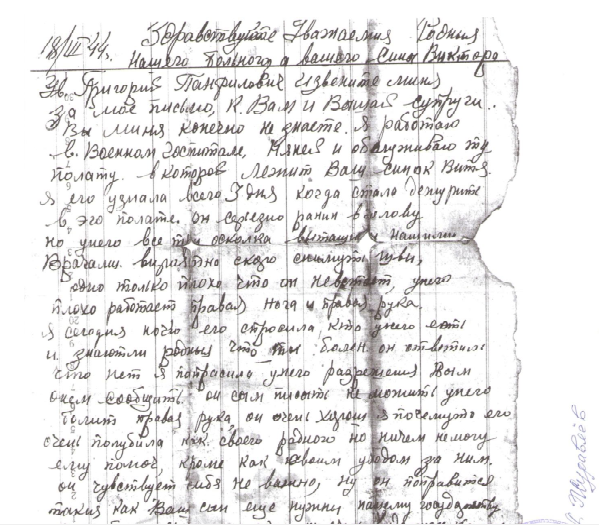 18/III 44г. Здравствуйте Уважаемыя Родныя
Нашего больного а вашего Сина Виктора
Григорий Панфилович Извените миня
за моё письмо, к Вам и Вашей супруги.
Вы миня конечно не знаете. Я работаю
в. Военном Госпитале, Няней и обслуживаю ту
полату. в которой Лежит Ваш синок Витя.
я его узнала всего 3 дня когда стала дежурить
в его полате. он серезно ранин в голову
но унего все осколка вытащи Нашими
Врачами. скоро снимут швы,
одно только плохо что он невстает, унего
плохо работает правая нога и правая рука.
я сегодня ночю его спросила кто унего есть
и знаютли родныя что ты болен, он ответил
что нет я попрасила унего разрешения Вам
онем сообщить, он сам писать не можить унего
болит правая рука, он очень хорош я почемуто его
очень полубила как своего родного но ничем немогу
ему помоч, кроме как своим уходом за ним.
он чувствует сибя не важно, ну он поправится
такия как Ваш сын еще нужны нашему государству